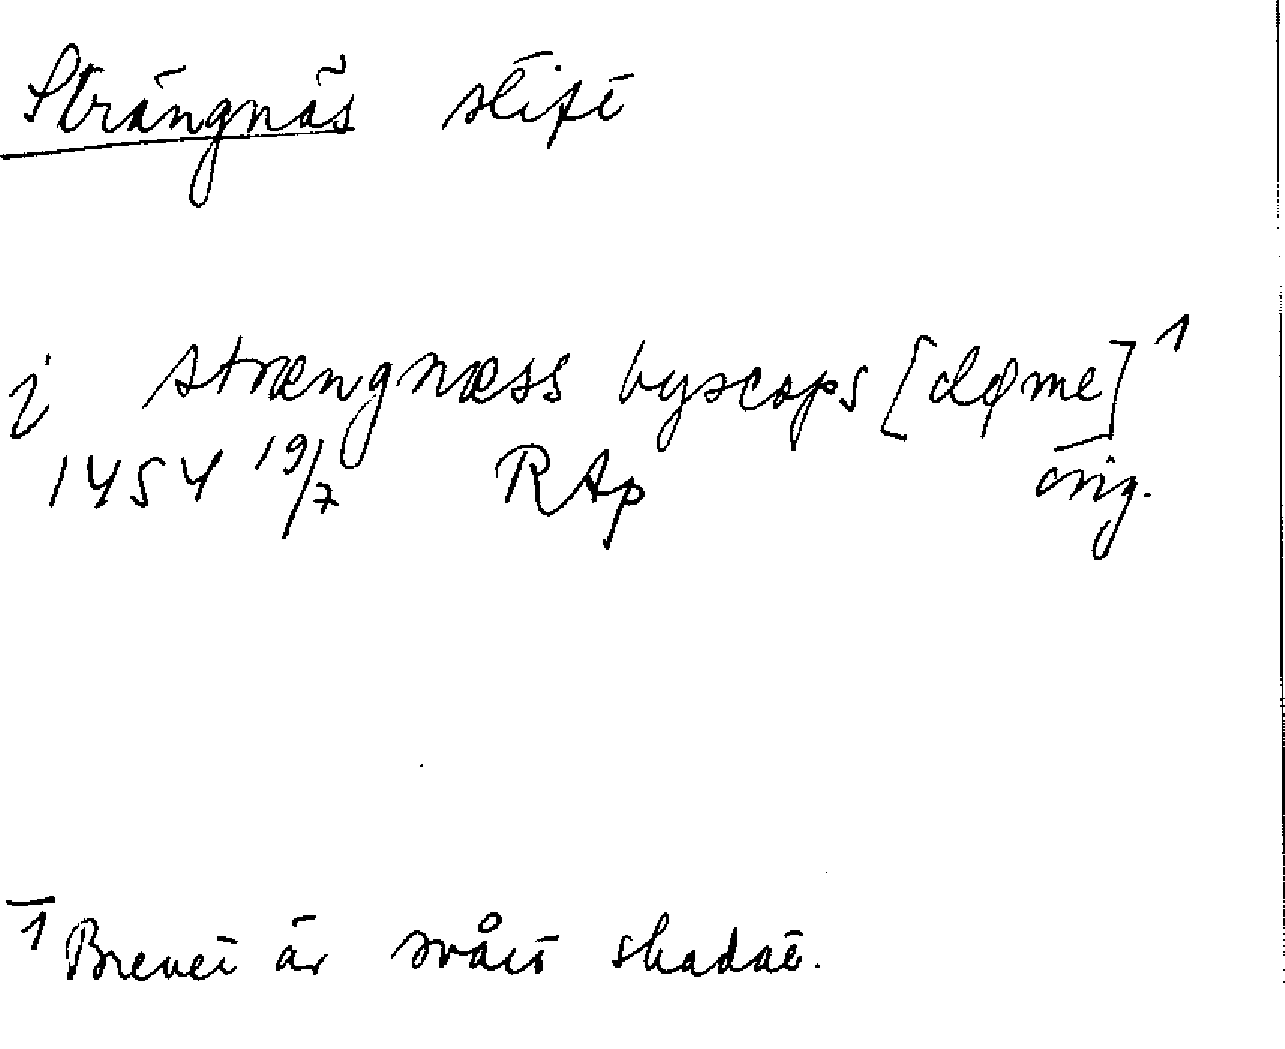 Strängnäs stift
j strængnæss byscops [døme]¹
1454 19/7 RAp orig.
¹ Brevet är svårt skadat.